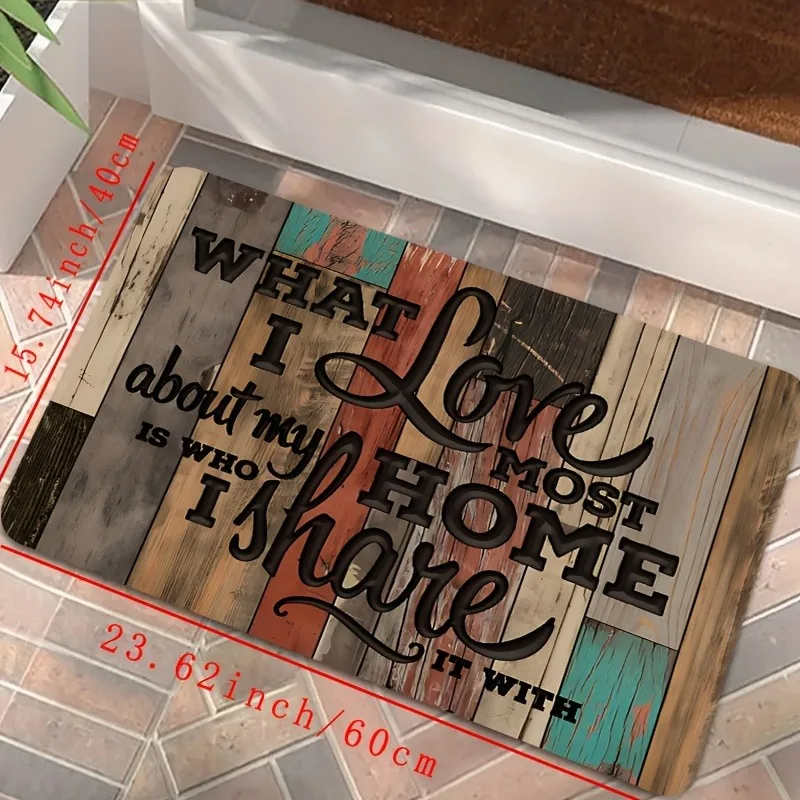 WHAT
I Love
MOST
about my HOME
IS WHO
I share
IT WITH
15.74inch/40cm
23.62inch/60cm